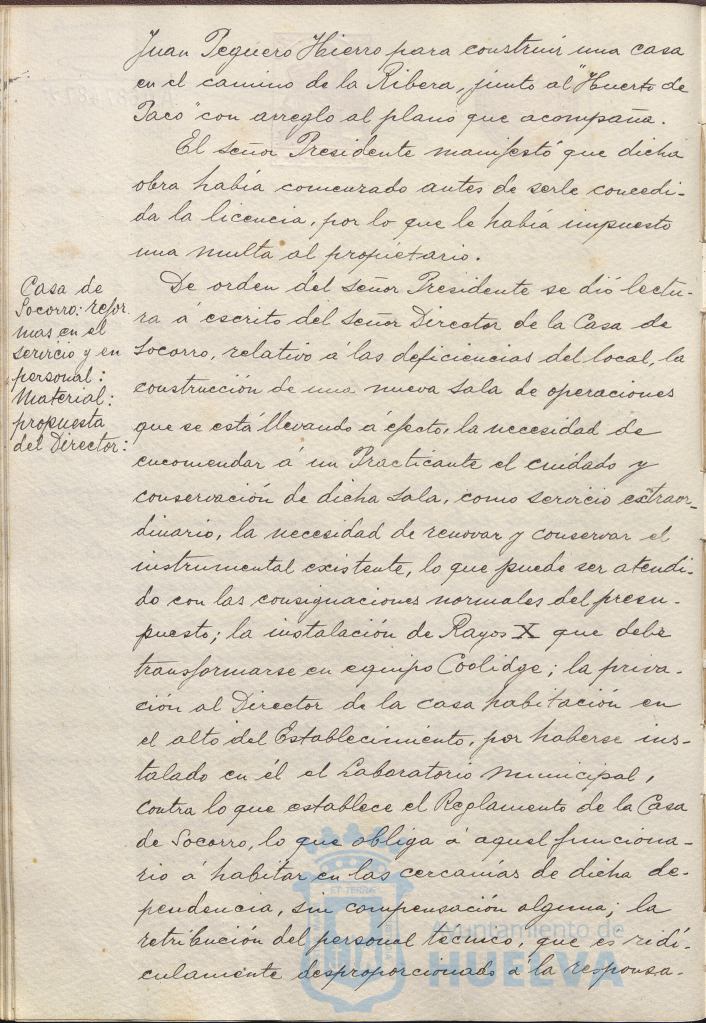 Juan Peguero Hierro para construir una casa
en el camino de la Ribera, junto al "Huerto de
Paco" con arreglo al plano que acompaña.
El señor Presidente manifestó que dicha
obra había comenzado antes de serle concedi-
da la licencia, por lo que le había impuesto
una multa al propietario.
Casa de
Socorro: refor
mas en el
servicio y en
personal:
Material:
propuesta
del Director:
De orden del señor Presidente se dió lectu-
ra á escrito del señor Director de la Casa de
Socorro, relativo á las deficiencias del local, la
construcción de una nueva sala de operaciones
que se está llevando á efecto, la necesidad de
encomendar á un Practicante el cuidado y
conservación de dicha sala, como servicio extraor-
dinario, la necesidad de renovar y conservar el
instrumental existente, lo que puede ser atendi-
do con las consignaciones normales del presu-
puesto; la instalación de Rayos X que debe
transformarse en equipo Coolidge; la priva-
ción al Director de la casa habitación en
el alto del Establecimiento, por haberse ins-
talado en él el Laboratorio Municipal,
contra lo que establece el Reglamento de la Casa
de Socorro, lo que obliga á aquel funciona-
rio á habitar en las cercanías de dicha de-
pendencia, sin compensación alguna; la
retribución del personal técnico, que es ridí-
culamente desproporcionado á la responsa-
ET TERRÆ
Ayuntamiento de
HUELVA